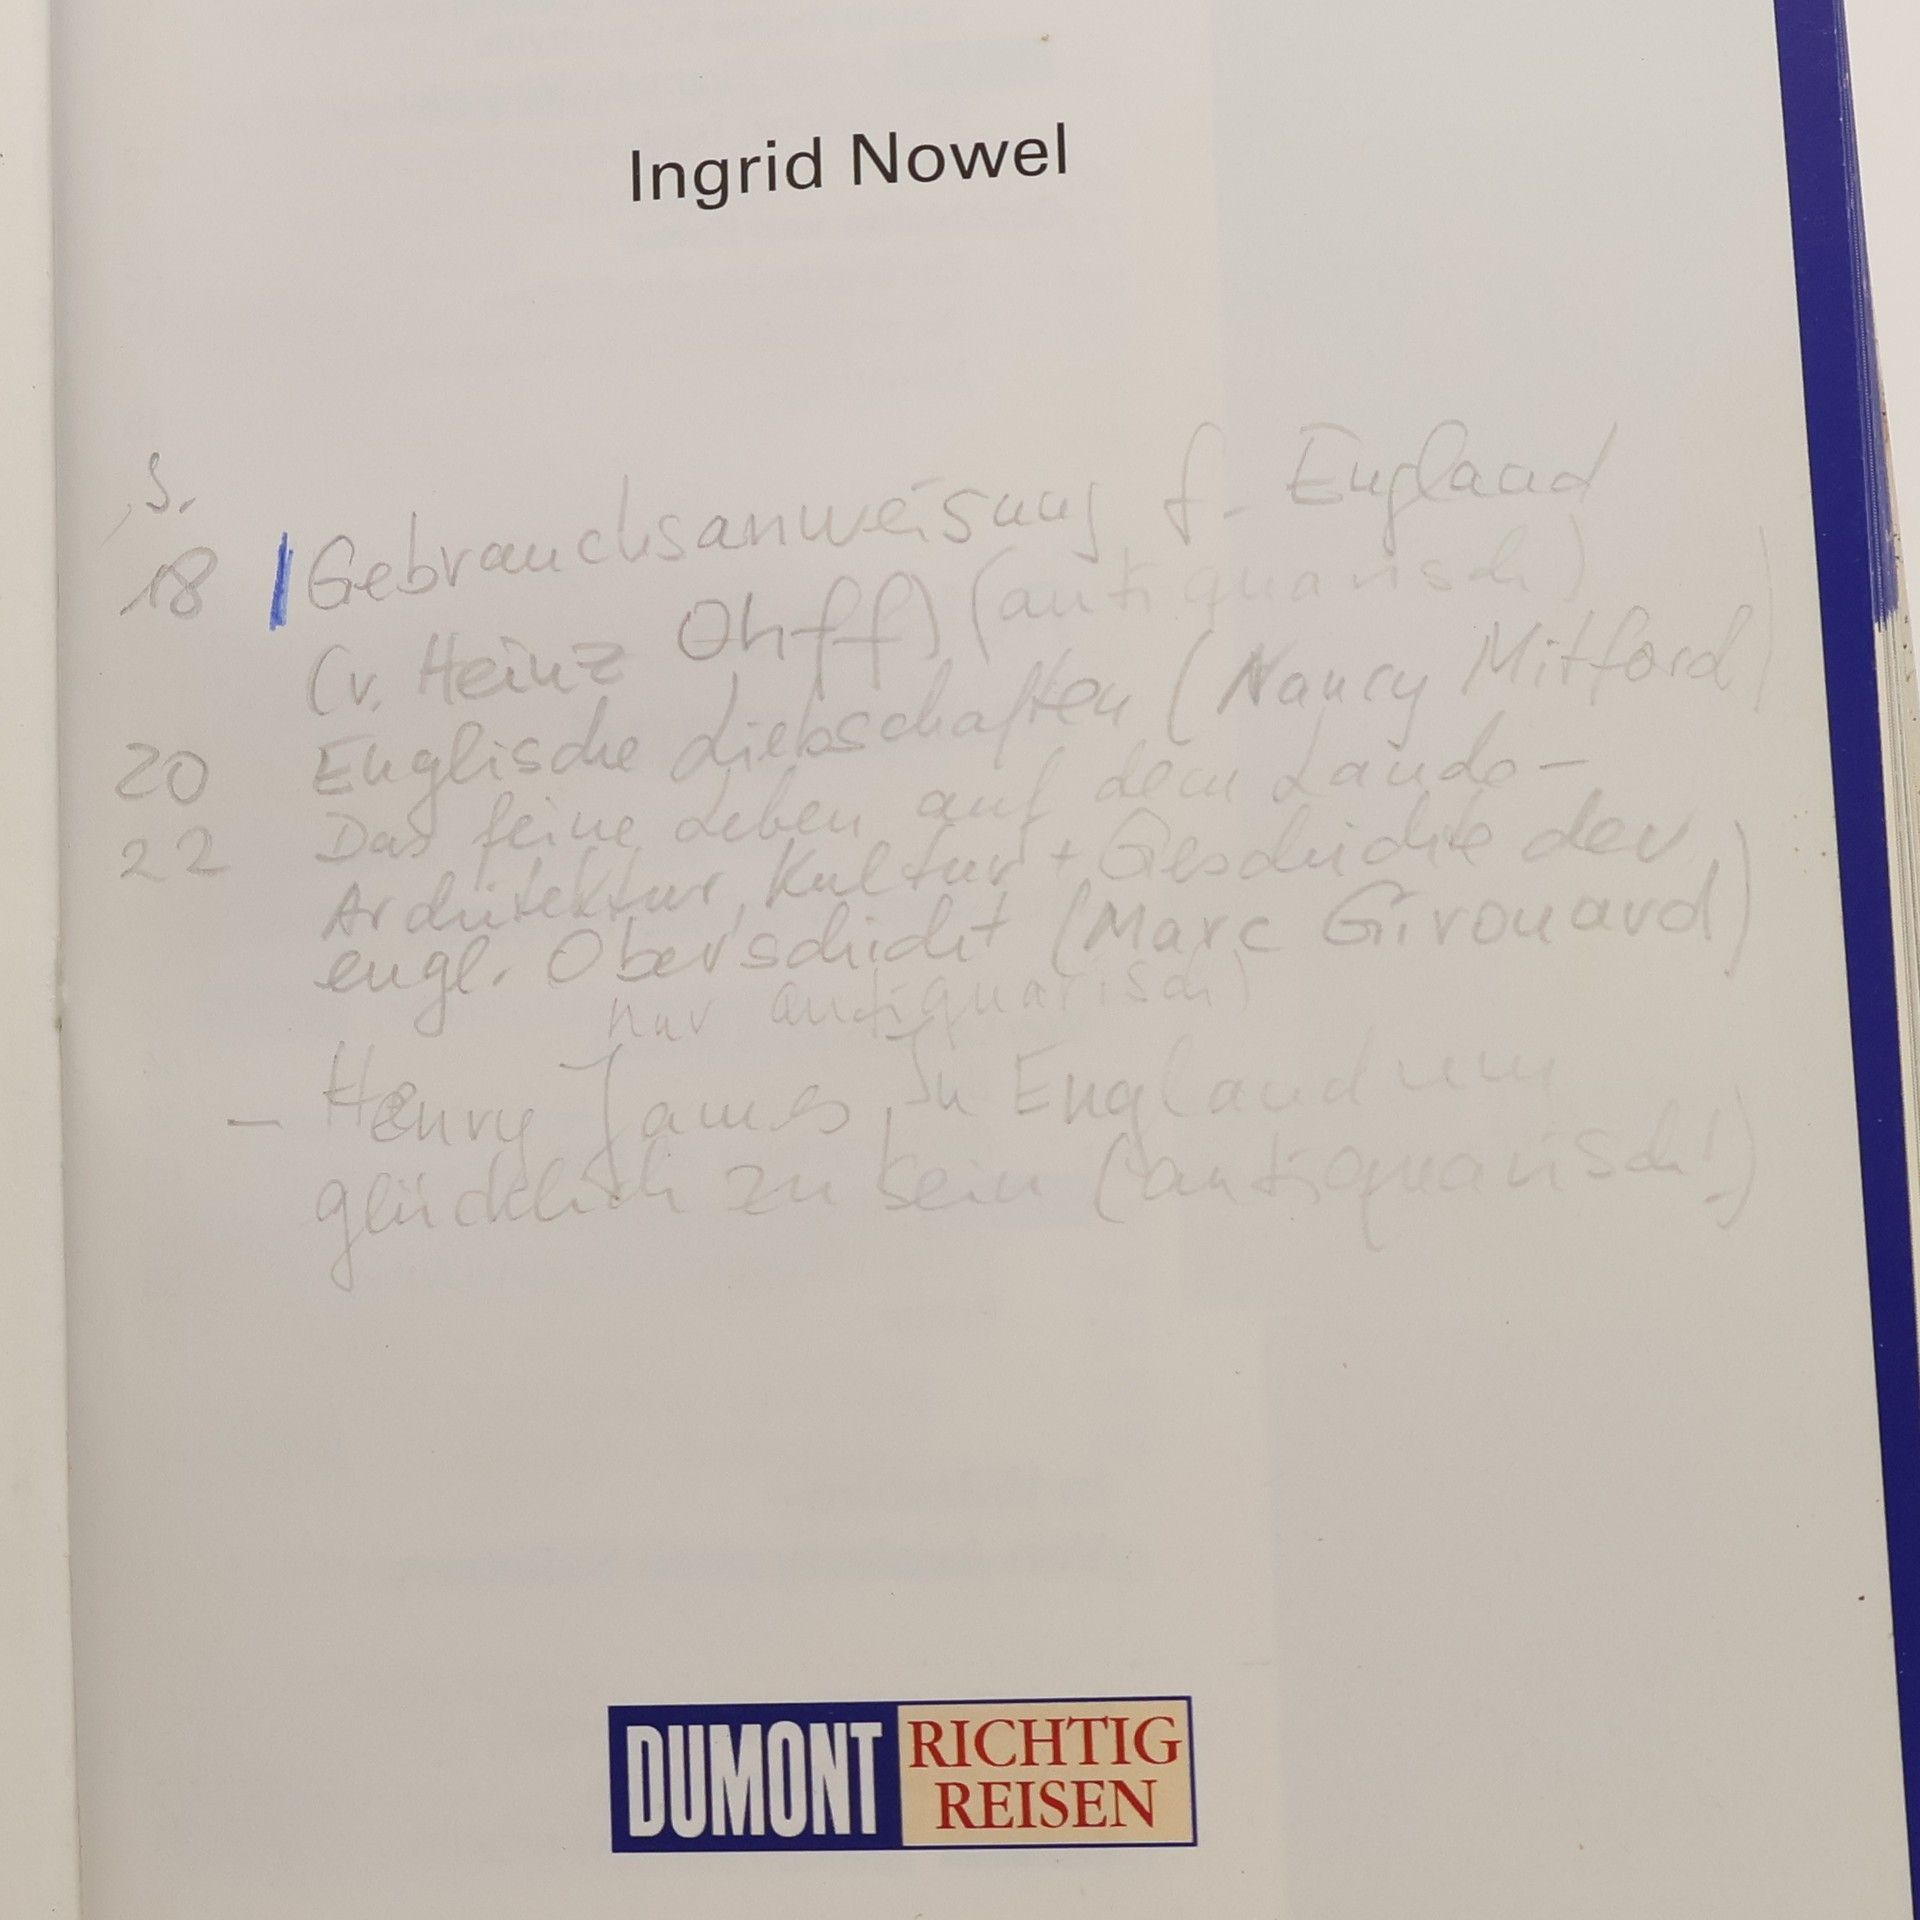 Ingrid Nowel
S.
18 Gebrauchsanweisung f. England
(v. Heinz Ohff) (antiquarisch)
20 Englische Liebschaften (Nancy Mitford)
22 Das feine Leben auf dem Lande -
Architektur, Kultur + Geschichte der
engl. Oberschicht (Marc Girouard)
nur antiquarisch)
- Henry James, In England um
glücklich zu sein (antiquarisch!)
DUMONT
RICHTIG
REISEN